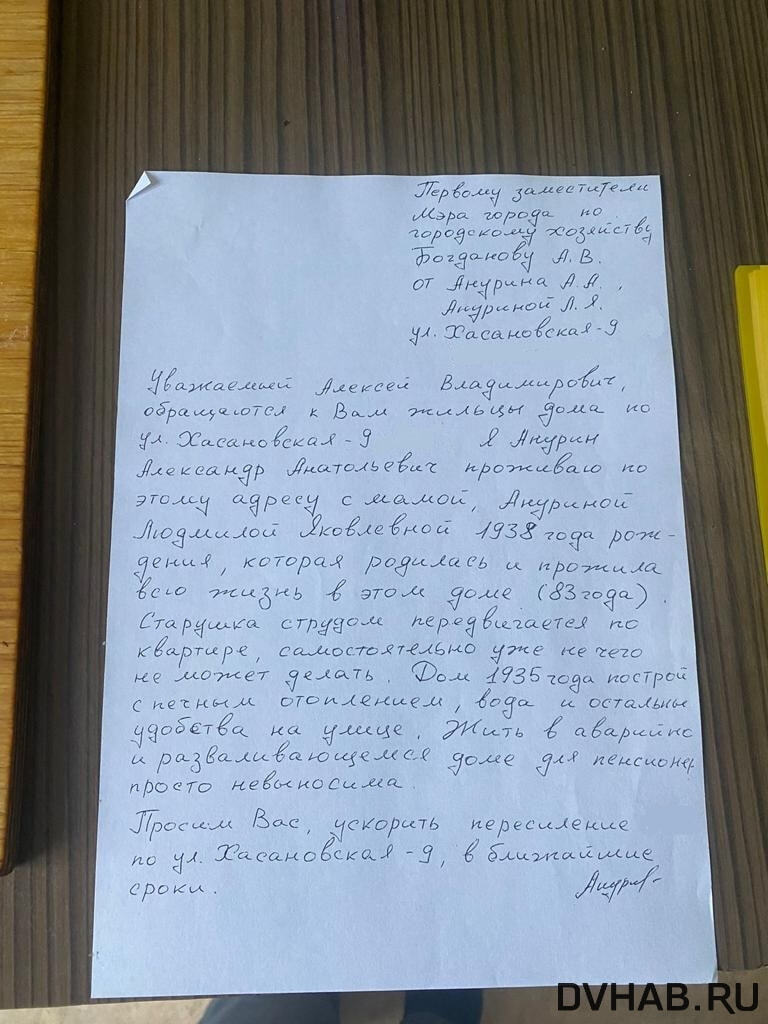 Первому заместители
Мэра города по
городскому хозяйству
Богданову А.В.
от Анурина А.А.,
Ануриной Л.Я.
ул. Хасановская-9
Уважаемый Алексей Владимирович,
обращаются к Вам жильцы дома по
ул. Хасановская-9 Я Анурин
Александр Анатольевич проживаю по
этому адресу с мамой, Ануриной
Людмилой Яковлевной 1938 года рож-
дения, которая родилась и прожила
всю жизнь в этом доме (83 года).
Старушка струдом передвигается по
квартире, самостоятельно уже не чего
не может делать. Дом 1935 года построй
с печным отоплением, вода и остальные
удобства на улице. Жить в аварийно
и разваливающемся доме для пенсионер
просто невыносима.
Просим Вас, ускорить пересиление
по ул. Хасановская-9, в ближайшие
сроки. Анурин
DVHAB.RU